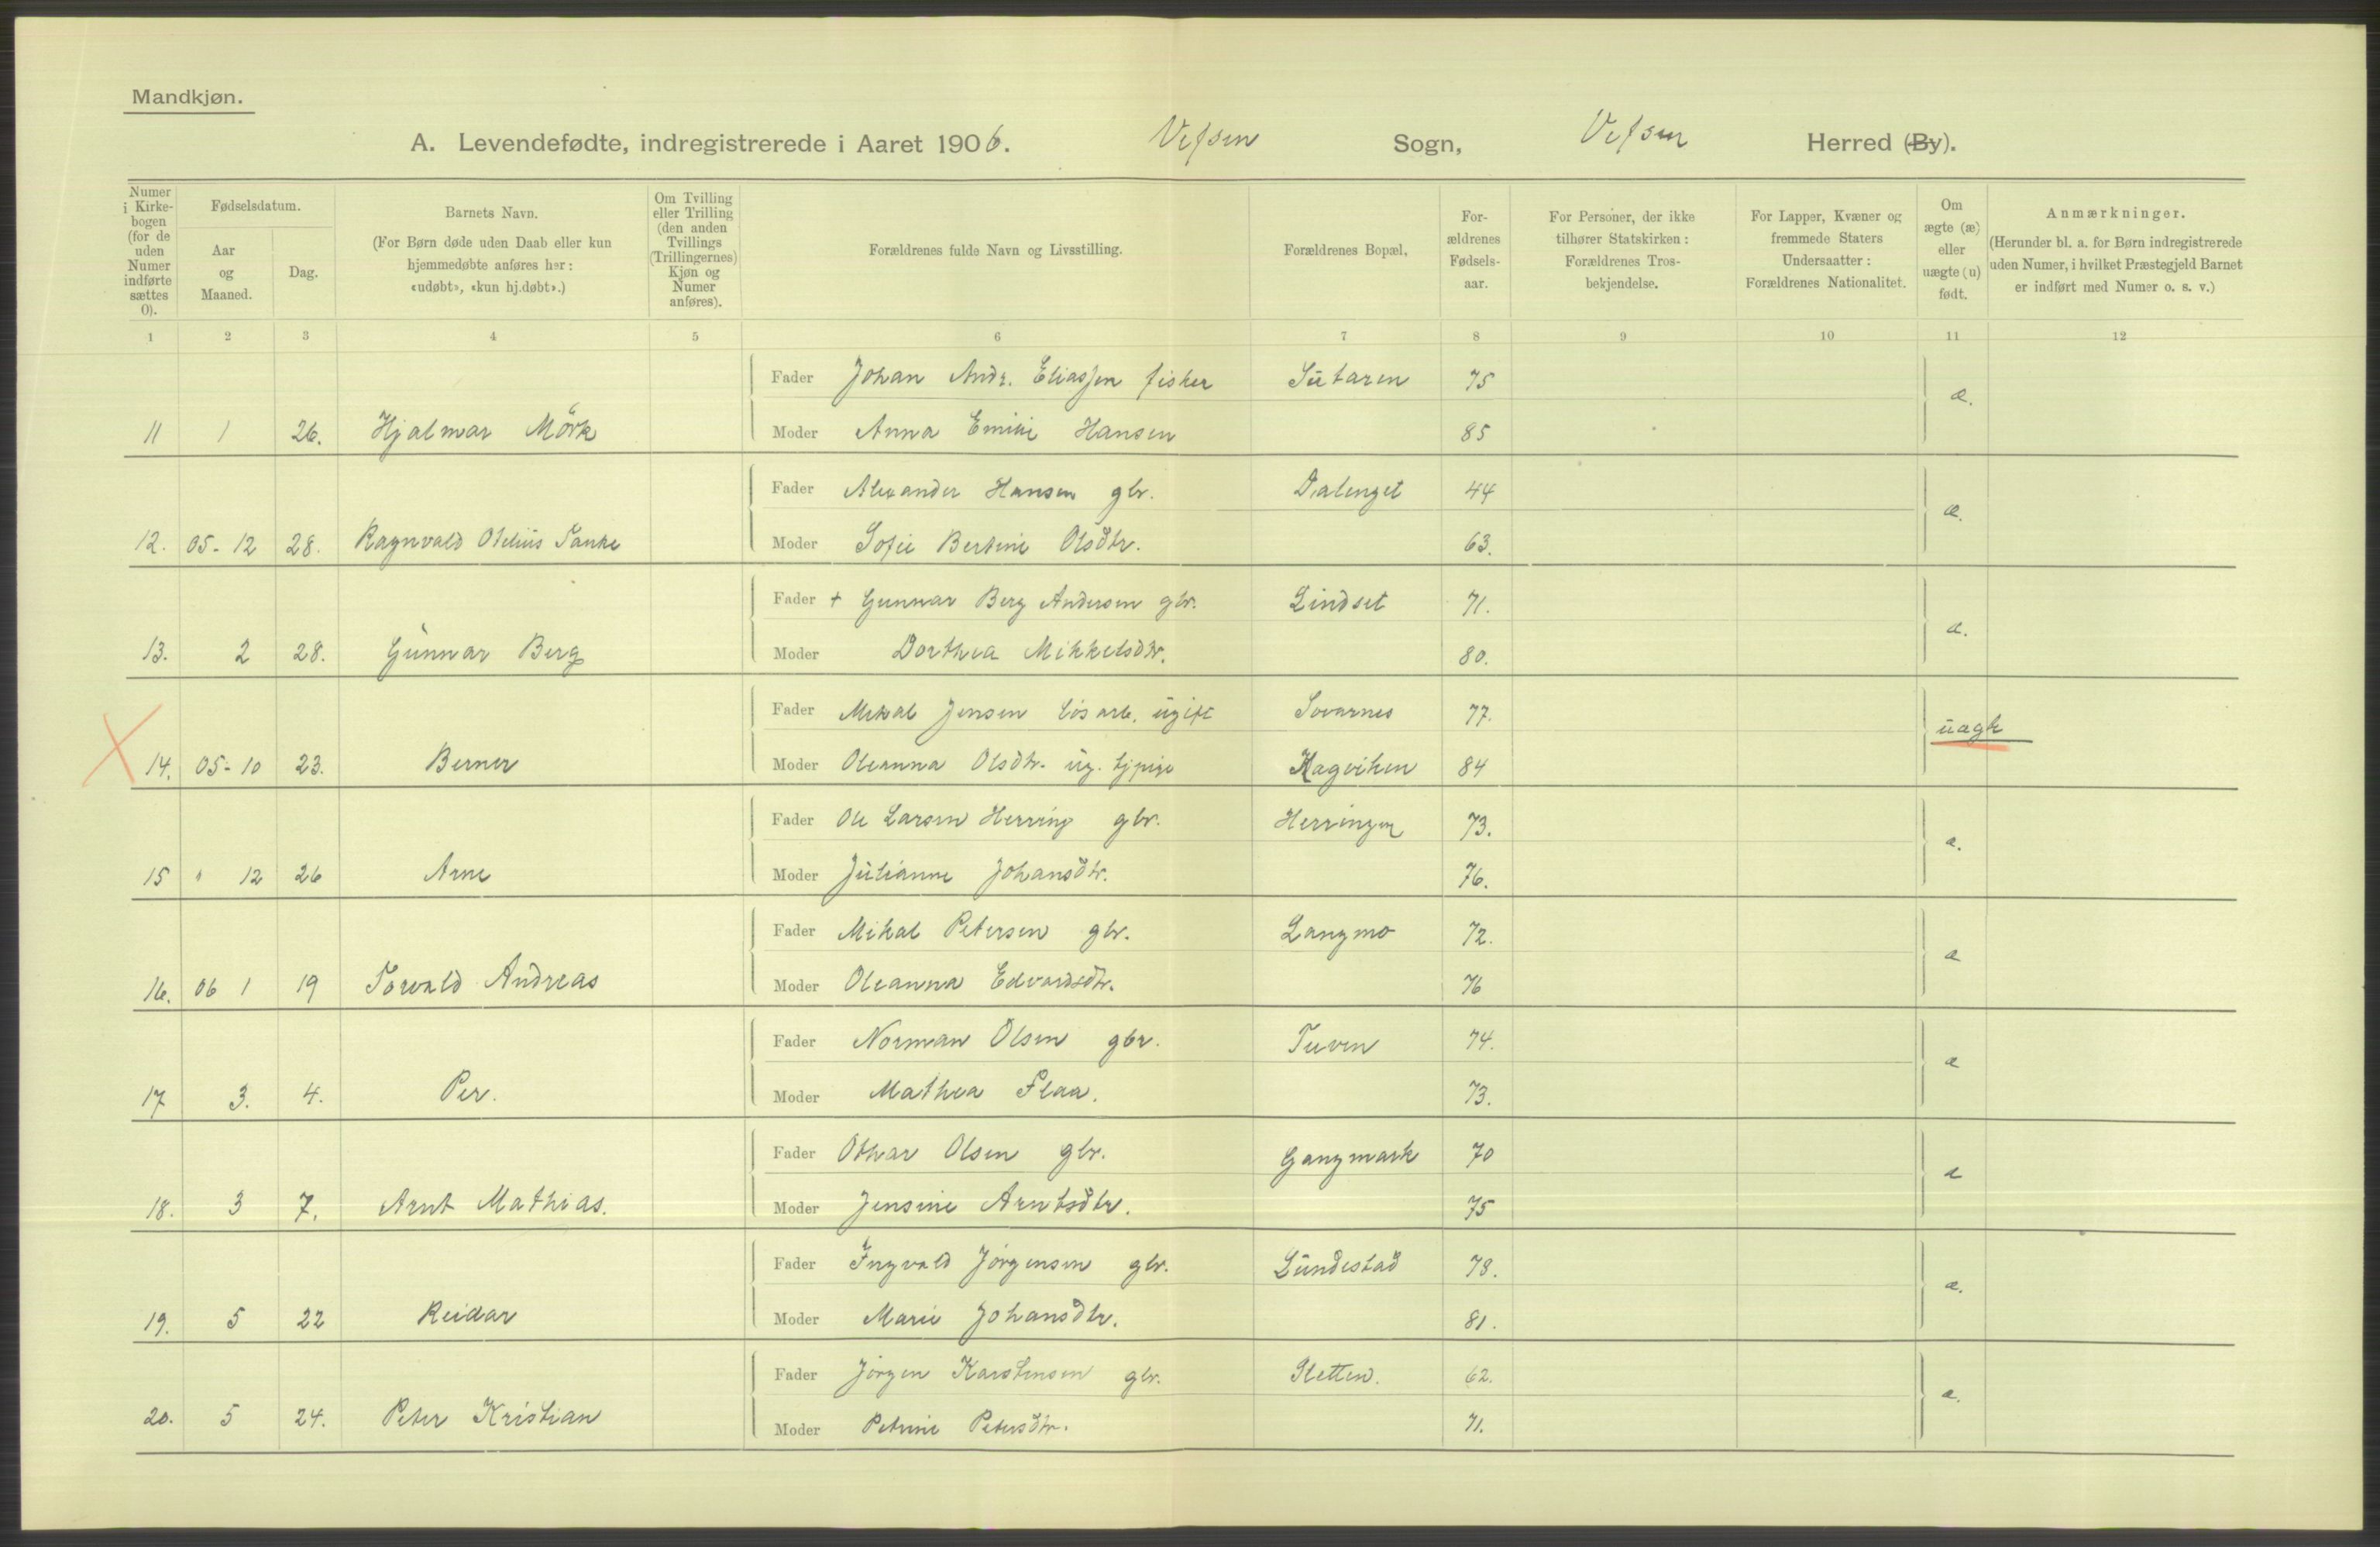 Mandkjøn.
A. Levendefødte, indregistrerede i Aaret 1906. Vefsen Sogn, Vefsen Herred (By).
Numer i Kirkebogen (for de uden Numer indførte sættes 0).
Fødselsdatum.
Aar og Maaned.
Dag.
Barnets Navn.
(For Børn døde uden Daab eller kun hjemmedøbte anføres her: «udøbt», «kun hj.døbt».)
Om Tvilling eller Trilling (den anden Tvillings (Trillingernes) Kjøn og Numer anføres).
Forældrenes fulde Navn og Livsstilling.
Forældrenes Bopæl,
Forældrenes Fødselsaar.
For Personer, der ikke tilhører Statskirken: Forældrenes Trosbekjendelse.
For Lapper, Kvæner og fremmede Staters Undersaatter: Forældrenes Nationalitet.
Om ægte (æ) eller uægte (u) født.
Anmærkninger.
(Herunder bl. a. for Børn indregistrerede uden Numer, i hvilket Præstegjeld Barnet er indført med Numer o. s. v.)
1 2 3 4 5 6 7 8 9 10 11 12
Fader Johan Andr. Eliassen fisker 75 æ.
11 1 26. Hjalmar Mörk Moder Anna Emilie Hansen 85
Fader Alexander Hansen gbr. Dalenget 44 æ.
12. 05-12 28. Ragnvald Otelius Moder Sofie Bertine Olsdtr. 63.
Fader + Gunnar Berg Andersen gbr. Lindset 71. æ.
13. 2 28. Gunnar Berg Moder Dorthea Mikkelsdtr. 80.
Fader Mikal Jensen løsarb. ugift Sovarnes 77. uægte
14. 05-10 23. Berner Moder Oleanna Olsdtr. ug. tjpige Hagviken 84
Fader Ole Larsen Herring gbr. Herringen 73. æ.
15 " 12 26 Arne Moder Julianne Johansdtr. 76.
Fader Mikal Petersen gbr. Langmo 72. æ
16. 06 1 19 Torvald Andreas Moder Oleanna Edvardsdtr. 76
Fader Norman Olsen gbr. Tuven 74. æ
17 3. 4. Per. Moder Mathea Flaa. 73.
Fader Othar Olsen gbr. Gangmark 70 æ
18. 3 7. Arnt Mathias. Moder Jensine Arntsdtr. 75
Fader Ingvald Jörgensen gbr. Lundestad 78. æ.
19. 5 22 Reidar Moder Marie Johansdtr. 81.
Fader Jörgen Karstensen gbr. Sletten. 62. æ.
20. 5 24. Peter Kristian Moder Petrine Petersdtr. 71.